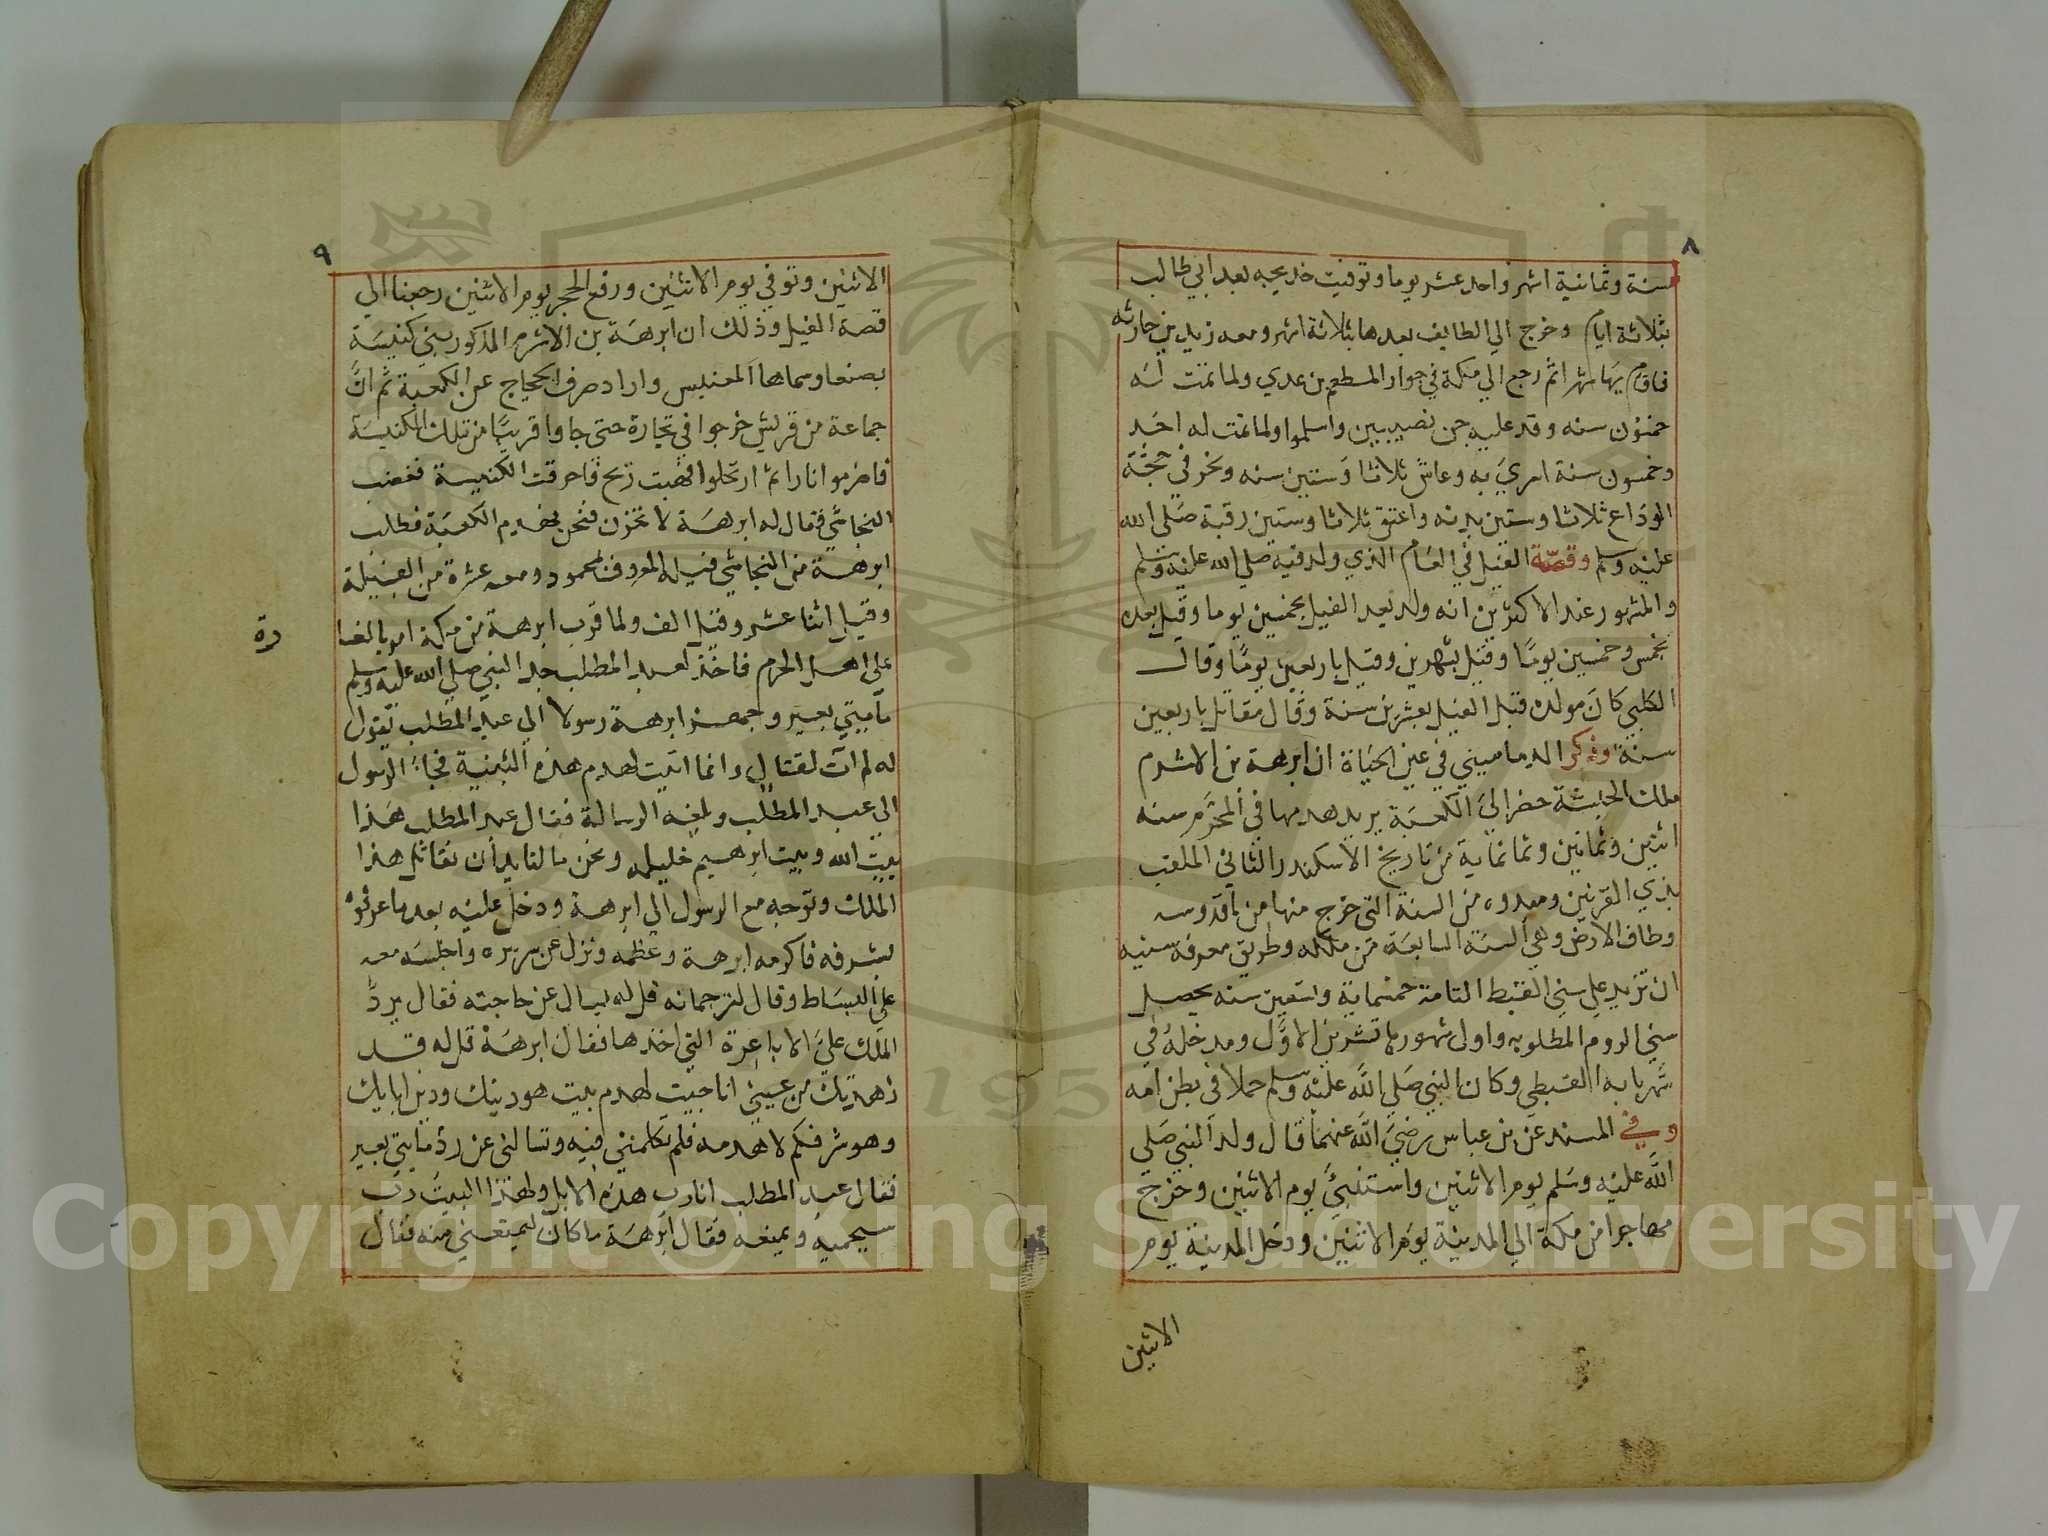 ٨
سنة وثمانية اشهر واحد عشر يوما وتوفيت خديجه بعد ابي طالب
بثلاثة ايام وخرج الي الطايف بعدها بثلاثة اشهر ومعه زيد بن حارثه
فاقام بها شهرا ثم رجع الي مكة في جوار المطعم بن عدي ولما تمت له
خمسون سنه وقد عليه جن نصيبين واسلموا ولما تمت له احد
وخمسون سنة اسري به وعاش ثلاثا وستين سنه ونحر في حجة
الوداع ثلاثا وستين بدنه واعتق ثلاثا وستين رقبة صلى الله
عليه وسلم وقصة الفيل في العام الذي ولد فيه صلي الله عليه وسلم
والمشهور عند الاكثرين انه ولد بعد الفيل بخمسين يوما وقيل بعده
بخمس وخمسين يوما وقيل بشهرين وقيل باربعين يوما وقال
الكلبي كان مولده قبل الفيل بعشرين سنة وقال مقاتل باربعين
سنة وذكر الدماميني في عين الحياة ان ابرهة بن الاشرم
ملك الحبشة حضر الي الكعبة يريد هدمها في المحرم سنه
اثنين وثمانين وثمانماية من تاريخ الاسكندر الثاني الملقب
بذي القرنين ومعدوه من السنة التي خرج منها من ماقدوسه
وطاف الارض وهي السنة السابعة من ملكه وطريق معرفة سنيه
ان تزيد علي سني القبط التامة خمسماية وتسعين سنه يحصل
سني الروم المطلوبه واول شهورها تشرين الاول ومدخله في
شهر بابه القبطي وكان النبي صلي الله عليه وسلم حملا في بطن امه
وفي المسند عن بن عباس رضي الله عنهما قال ولد النبي صلى
الله عليه وسلم يوم الاثنين واستنبئ يوم الاثنين وخرج
مهاجرا من مكة الي المدينة يوم الاثنين ودخل المدينة يوم
الاثنين
٩
الاثنين وتوفي يوم الاثنين ورفع الحجر يوم الاثنين رجعنا الي
قصة الفيل وذلك ان ابرهة بن الاشرم المذكور بني كنيسة
بصنعا وسماها المغنيس واراد صرف الحجاج عن الكعبة ثم ان
جماعة من قريش خرجوا في تجارة حتي جاوا قريبا من تلك الكنيسة
فاضرموا نارا ثم ارتحلوا فهبت ريح فاحرقت الكنيسة فغضب
النجاشي فقال له ابرهة لا تحزن فنحن نهدم الكعبة فطلب
ابرهة من النجاشي فيله المعروف بمحمود ومعه عشرة من الفيلة
وقيل اثنا عشر وقيل الف ولما قرب ابرهة من مكة امر بالغا
رة
علي اهل الحرم فاخذ لعبد المطلب جد النبي صلي الله عليه وسلم
مايتي بعير وجهز ابرهة رسولا الي عبد المطلب يقول
له لم آت لقتال وانما اتيت لهدم هذه البنية فجاء الرسول
الي عبد المطلب وبلغه الرسالة فقال عبد المطلب هذا
بيت الله وبيت ابرهيم خليله ونحن مالنا يد أن نقاتل هذا
الملك وتوجه مع الرسول الي ابرهة ودخل عليه بعد ما عرفوه
بشرفه فاكرمه ابرهة وعظمه ونزل عن سريره واجلسه معه
علي البساط وقال لترجمانه قل له يسال عن حاجته فقال يرد
الملك علي الاباعرة التي اخذها فقال ابرهة قل له قد
زهدتك من عيني انا جيت لهدم بيت هو دينك ودين ابايك
وهو شرفكم لاهدمه فلم تكلمني فيه وتسالني عن رد مايتي بعير
فقال عبد المطلب انا رب هذه الابل ولهذا البيت رب
سيحميه ويمنعه فقال ابرهة ما كان ليمنعه مني فقال
Copyright © King Saud University